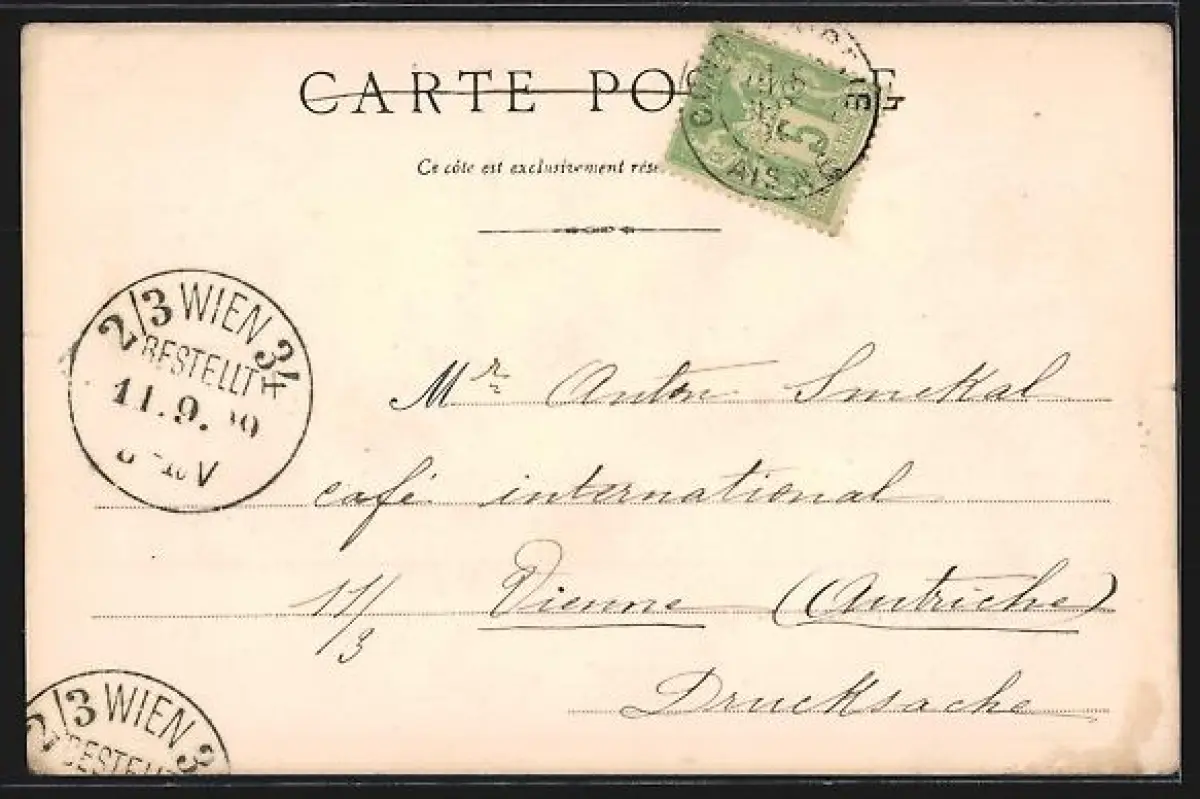 CARTE PO E
Ce côte est exclusivement rése
5
AISNE
2/3 WIEN 34
BESTELLT
11.9.
V
Mr Anton Smekal
café international
11/3 Vienne (Autriche)
Drucksache
2/3 WIEN 3
BESTELLT